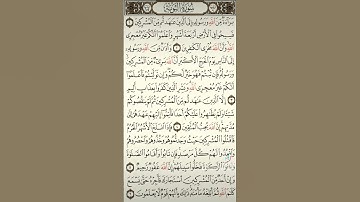 سُورَةُ التَّوْبَةِ
بَرَاءَةٌ مِّنَ اللَّهِ وَرَسُولِهِ إِلَى الَّذِينَ عَاهَدتُّم مِّنَ الْمُشْرِكِينَ ١
فَسِيحُوا فِي الْأَرْضِ أَرْبَعَةَ أَشْهُرٍ وَاعْلَمُوا أَنَّكُمْ غَيْرُ مُعْجِزِي
اللَّهِ وَأَنَّ اللَّهَ مُخْزِي الْكَافِرِينَ ٢ وَأَذَانٌ مِّنَ اللَّهِ وَرَسُولِهِ
إِلَى النَّاسِ يَوْمَ الْحَجِّ الْأَكْبَرِ أَنَّ اللَّهَ بَرِيءٌ مِّنَ الْمُشْرِكِينَ
وَرَسُولُهُ فَإِن تُبْتُمْ فَهُوَ خَيْرٌ لَّكُمْ وَإِن تَوَلَّيْتُمْ فَاعْلَمُوا
أَنَّكُمْ غَيْرُ مُعْجِزِي اللَّهِ وَبَشِّرِ الَّذِينَ كَفَرُوا بِعَذَابٍ أَلِيمٍ
٣ إِلَّا الَّذِينَ عَاهَدتُّم مِّنَ الْمُشْرِكِينَ ثُمَّ لَمْ يَنقُصُوكُمْ
شَيْئًا وَلَمْ يُظَاهِرُوا عَلَيْكُمْ أَحَدًا فَأَتِمُّوا إِلَيْهِمْ عَهْدَهُمْ إِلَىٰ
مُدَّتِهِمْ إِنَّ اللَّهَ يُحِبُّ الْمُتَّقِينَ ٤ فَإِذَا انسَلَخَ الْأَشْهُرُ الْحُرُمُ
فَاقْتُلُوا الْمُشْرِكِينَ حَيْثُ وَجَدتُّمُوهُمْ وَخُذُوهُمْ وَاحْصُرُوهُمْ
وَاقْعُدُوا لَهُمْ كُلَّ مَرْصَدٍ فَإِن تَابُوا وَأَقَامُوا الصَّلَاةَ
وَآتَوُا الزَّكَاةَ فَخَلُّوا سَبِيلَهُمْ إِنَّ اللَّهَ غَفُورٌ رَّحِيمٌ ٥
وَإِنْ أَحَدٌ مِّنَ الْمُشْرِكِينَ اسْتَجَارَكَ فَأَجِرْهُ حَتَّىٰ يَسْمَعَ
كَلَامَ اللَّهِ ثُمَّ أَبْلِغْهُ مَأْمَنَهُ ذَٰلِكَ بِأَنَّهُمْ قَوْمٌ لَّا يَعْلَمُونَ ٦